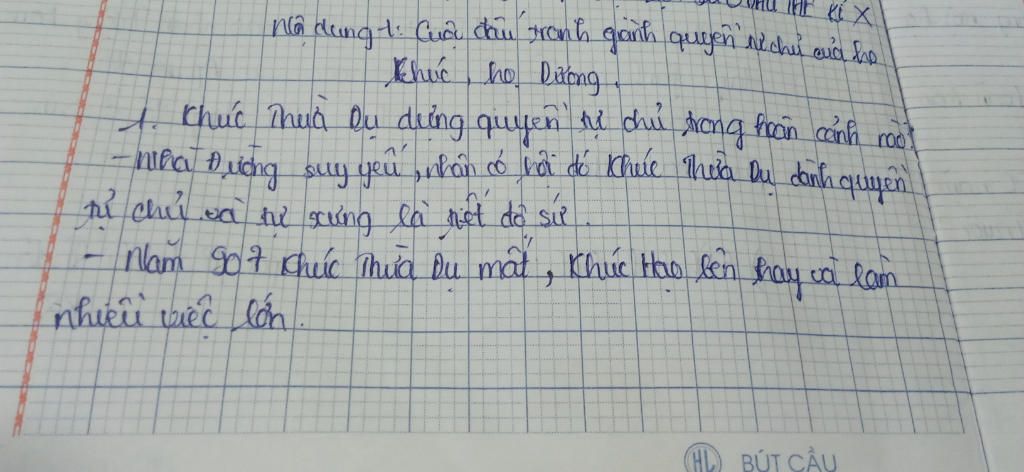 thế kỉ X
nội dung 1: Cuộc đấu tranh giành quyền tự chủ của họ
Khúc, họ Dương.
1. Khúc Thừa Dụ dựng quyền tự chủ trong hoàn cảnh nào?
- nhà Đường suy yếu, nhân cơ hội đó Khúc Thừa Dụ dành quyền
tự chủ và tự xưng là tiết độ sứ.
- Năm 907 Khúc Thừa Dụ mất, Khúc Hạo lên thay và làm
nhiều việc lớn.
HL BÚT CẦU